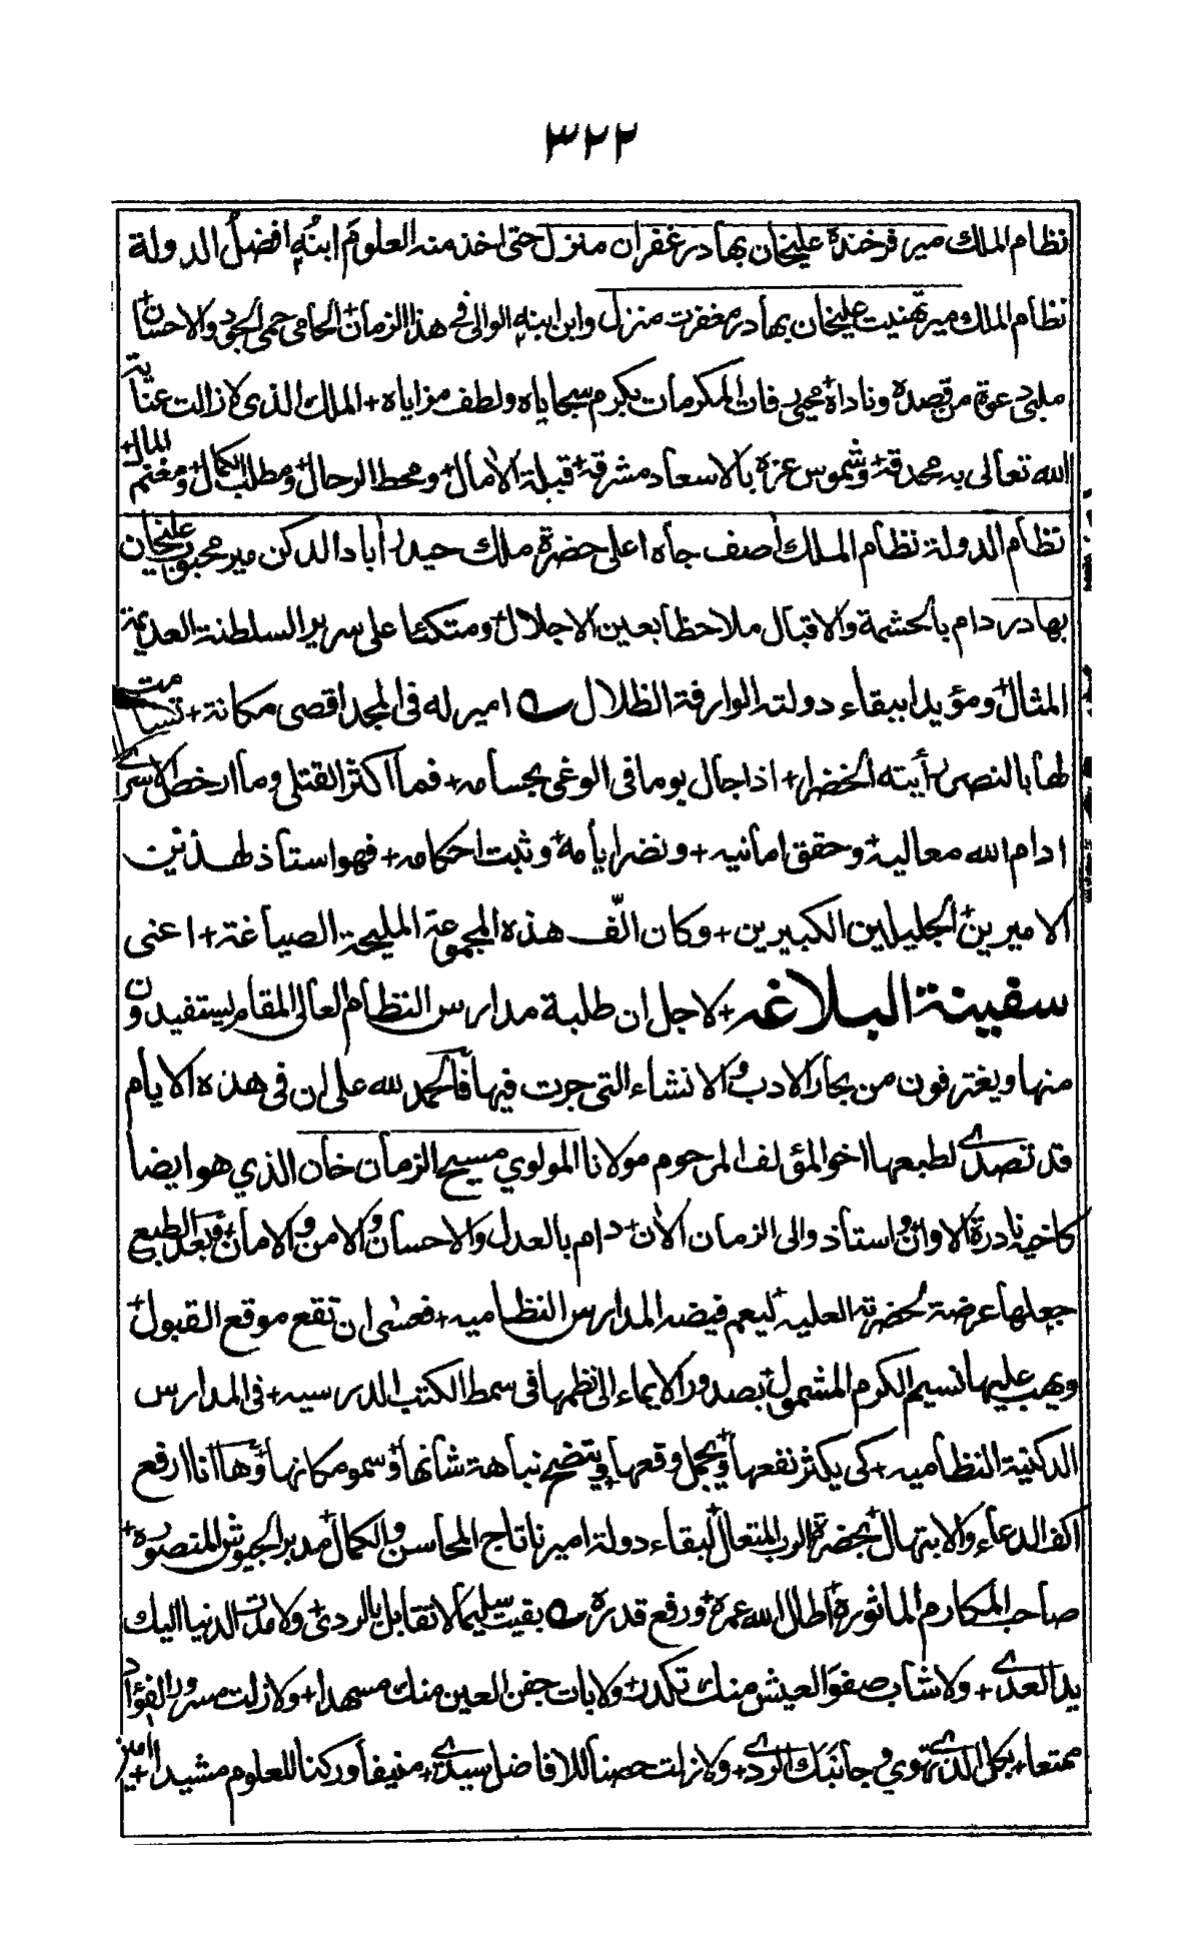 ٣٢٢
نظام الملك مير فرخندة عليخان بهادر غفران منزل حتى اخذ منه العلوم ابنه افضل الدولة
نظام الملك مير تهنيت عليخان بهادر مغفرت منزل وابن ابنه الوالى فى هذا الزمان + الحامى حمى الجود والاحسان +
ملبى دعوة من قصده وناداه + محيى رفات المكرمات بكرم سجاياه ولطف مزاياه + الملك الذى لا زالت عناية
الله تعالى به محدقة + وشموس عزه بالاسعاد مشرقة + قبلة الامال + ومحط الرحال + ومطلب الكمال + ومغنم المال +
نظام الدولة نظام الملك اصف جاه اعلى حضرة ملك حيدر اباد الدكن مير محبوب عليخان
بهادر دام بالحشمة والاقبال ملاحظا بعين الاجلال + ومتكئا على سرير السلطنة العديمة
المثال + ومؤيدا ببقاء دولته الوارفة الظلال امير له فى المجد اقصى مكانة + تسامت
لها بالنصر رأيته الخضرا + اذا جال يوما فى الوغى بحسامه + فما اكثر القتلى وما ارخص الاسرى
ادام الله معاليه + وحقق امانيه + ونضر ايامه + وثبت احكامه + فهو استاذ لهذين
الاميرين + الجليلين الكبيرين + وكان الّف هذه المجموعة المليحة الصياغة + اعنى
سفينة البلاغه + لاجل ان طلبة مدارس النظام العالى المقام يستفيدون
منها ويغترفون من بحار الادب والانشاء التى جرت فيها فالحمد لله على ان فى هذه الايام
قد تصدى لطبعها اخو المؤلف المرحوم مولانا المولوي مسيح الزمان خان الذي هو ايضا
كاخيه نادرة الاوان + واستاذ والى الزمان الان + دام بالعدل والاحسان والامن والامان + وبعد الطبع
جعلها عرضة لحضرته العليه + ليعم فيضه المدارس النظاميه + فعسى ان تقع موقع القبول +
ويهب عليها نسيم الكرم المشمول + بصدور الايماء الى نظمها فى سمط الكتب الدرسيه + فى المدارس
الدكنية النظاميه + كى يكثر نفعها + ويجمل وقعها + ويتضح نباهة شانها + وسمو مكانها + وها انا ارفع
اكف الدعاء والابتهال + بحضرة الرب المتعال + لبقاء دولة اميرنا تاج المحاسن والكمال + مدبر الجيوش المنصوره +
صاحب المكارم الماثورة + اطال الله عمره + ورفع قدره بقيت سليما لا تقابل بالردى + ولا مدت الدنيا اليك
يد العدى + ولا شاب صفو العيش منك تكدر + ولا بات جفن العين منك مسهدا + ولا زلت مسرور الفؤاد
ممتعا + بكل الذى تهوي وجانبك الردى + ولا زلت حصنا للافاضل سيدى + منيفا وركنا للعلوم مشيدا + امين